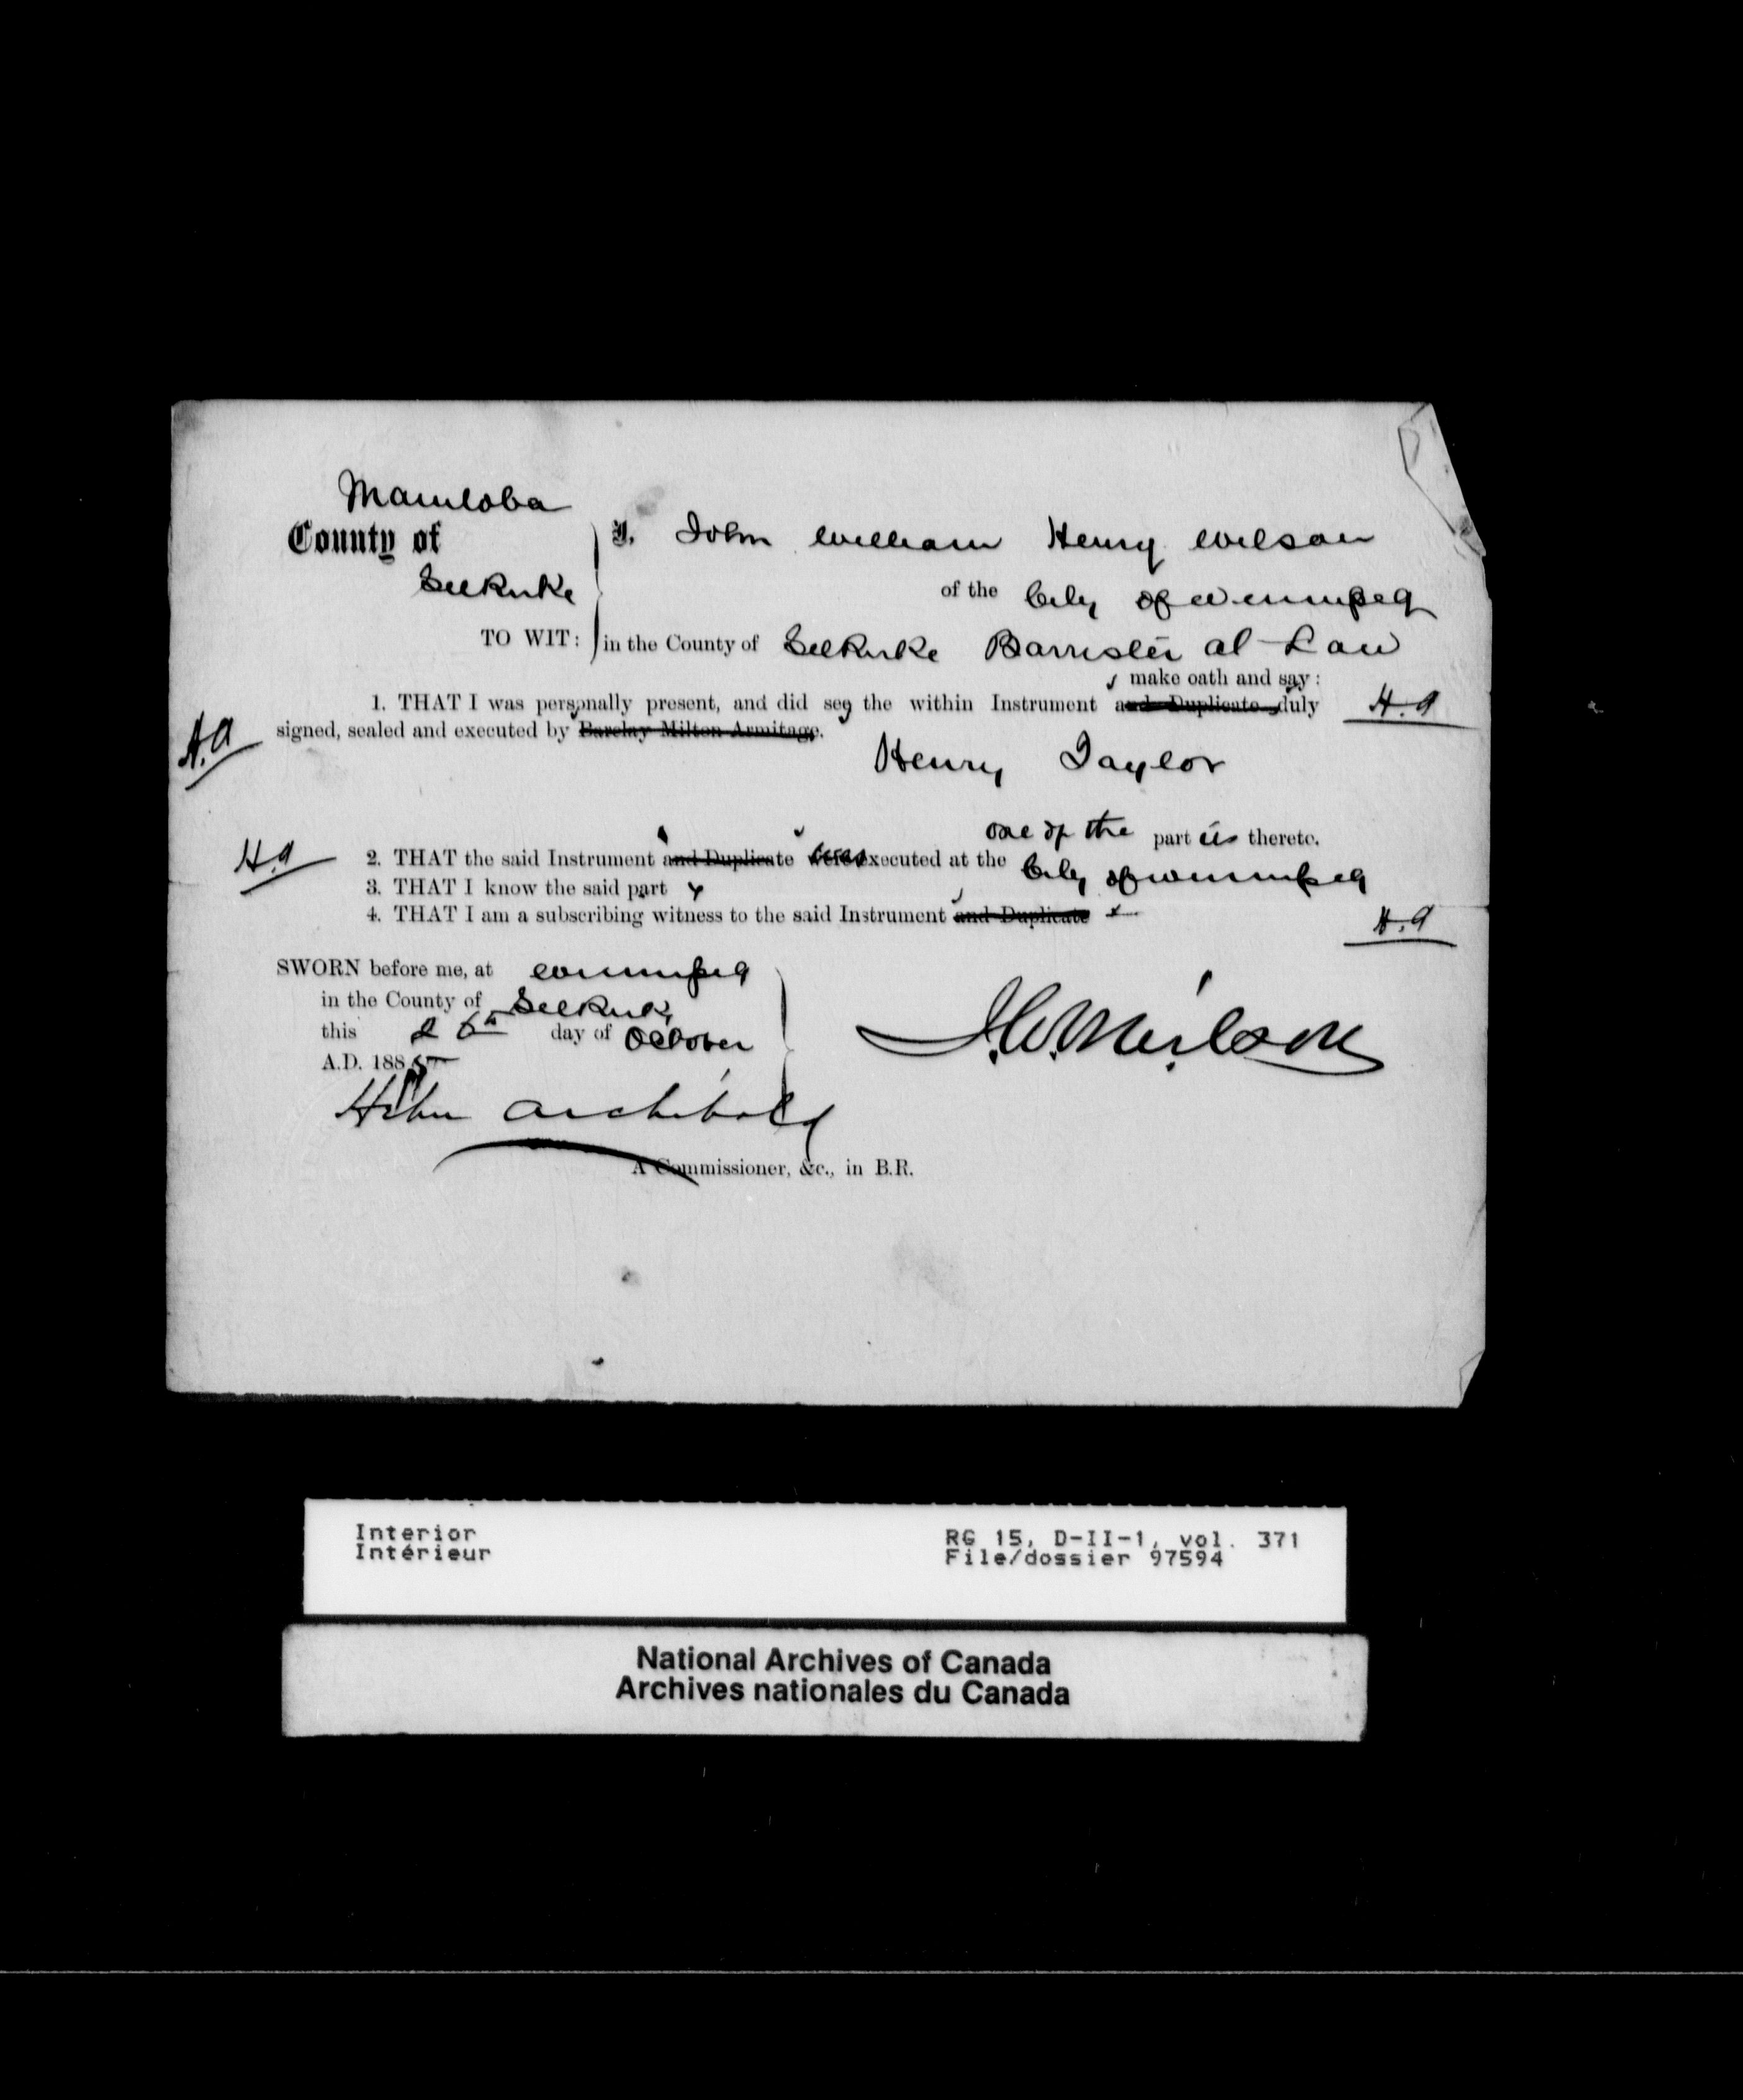 Manitoba
County of
Selkirke
TO WIT:
I, John William Henry Wilson
of the City of Winnipeg
in the County of Selkirke Barrister at Law
make oath and say:
1. THAT I was personally present, and did see the within Instrument and Duplicate duly H.A
H.A signed, sealed and executed by Barclay Milton Armitage.
Henry Taylor
one of the part ies thereto.
H.A 2. THAT the said Instrument and Duplicate were executed at the City of Winnipeg
3. THAT I know the said part y
4. THAT I am a subscribing witness to the said Instrument and Duplicate
H.A
SWORN before me, at Winnipeg
in the County of Selkirk
this 26th day of October
A.D. 1885
Archibald
A Commissioner, &c., in B.R.
Interior
Intérieur
RG 15, D-II-1, vol. 371
File/dossier 97594
National Archives of Canada
Archives nationales du Canada